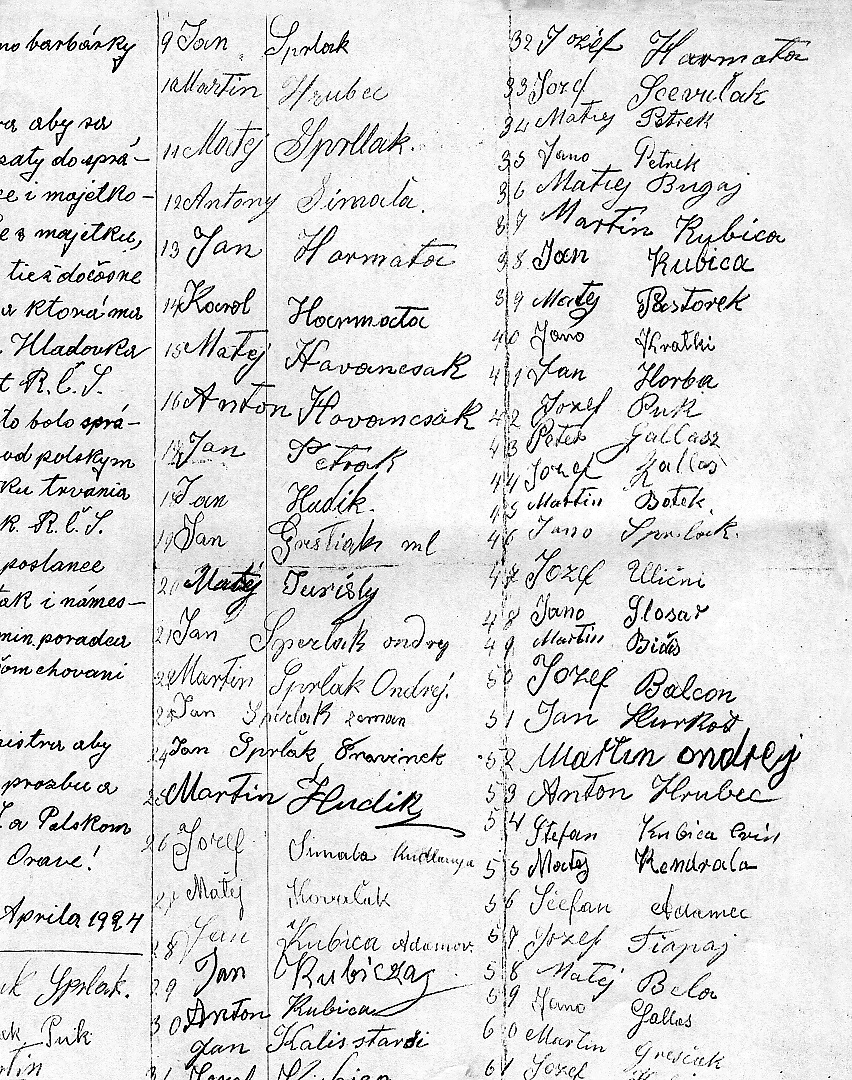 no barbárky
va aby sa
zaty do sprá-
ce i majetko-
majetku,
tiež dočasne
a ktorá má
Hladovka
t R.Č.S.
to bolo sprá-
od polskym
ku trvania
k. R.Č.S.
poslance
tak i námes-
min. poradca
om chovani
nistra aby
prozbu a
a Polskom
Orave!
Aprila 1924
Sprlak.
Puk
9 Jan Sprlak
10 Martin Hrubec
11 Matej Sprllak.
12 Antony Simala.
13 Jan Harmata
14 Karol Harmata
15 Matej Havancsak
16 Anton Hovancsak
17 Jan Petrak
18 Jan Hudik.
19 Jan Grestiak ml
20 Matéj Jurisly
21 Jan Sperlak ondrej
22 Martin Sprlak Ondrej.
23 Jan Sperlak zeman
24 Jan Sprlak Oravinek
25 Martin Hudik
26 Jozef Simala
27 Matej Kovalak
28 Jan Kubica Adamov
29 Jan Kubiczaj
30 Anton Kubica
Jan Kalis starsi
31 Jozef
32 Jozéf Harmata
33 Jozef Scevulak
34 Matiej Petrek
35 Jano Petrek
36 Matiej Bugaj
37 Martin Kubica
38 Jan Kubica
39 Matej Pastorek
40 Jano Kratki
41 Jan Horba
42 Jozef Puk
43 Peter Gallasz
44 Jozef Gallas
45 Martin Botek.
46 Jano Sprlack.
47 Jozef Ulični
48 Jano Glosar
49 Martin
50 Jozef Balcon
51 Jan Kurkot
52 Martin ondrej
53 Anton Hrubec
54 Stefan Kubica
55 Matej Kendrala
56 Scefan Adamec
57 Jozef Tiapaj
58 Matéj Bela
59 Jano Gallas
60 Martin Gresčak
61 Jozef